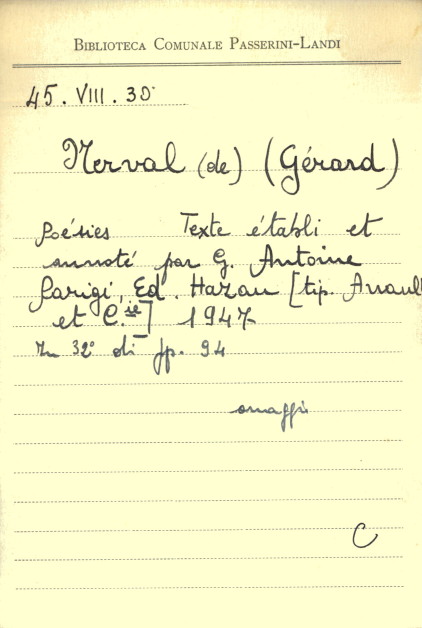 BIBLIOTECA COMUNALE PASSERINI-LANDI
45.VIII.30
Nerval (de) (Gérard)
Poésies Texte établi et
annoté par G. Antoine
Parigi, Ed. Hazan [tip. Arrault
et C.ie] 1947
In 32° di pp. 94
omaggio
C